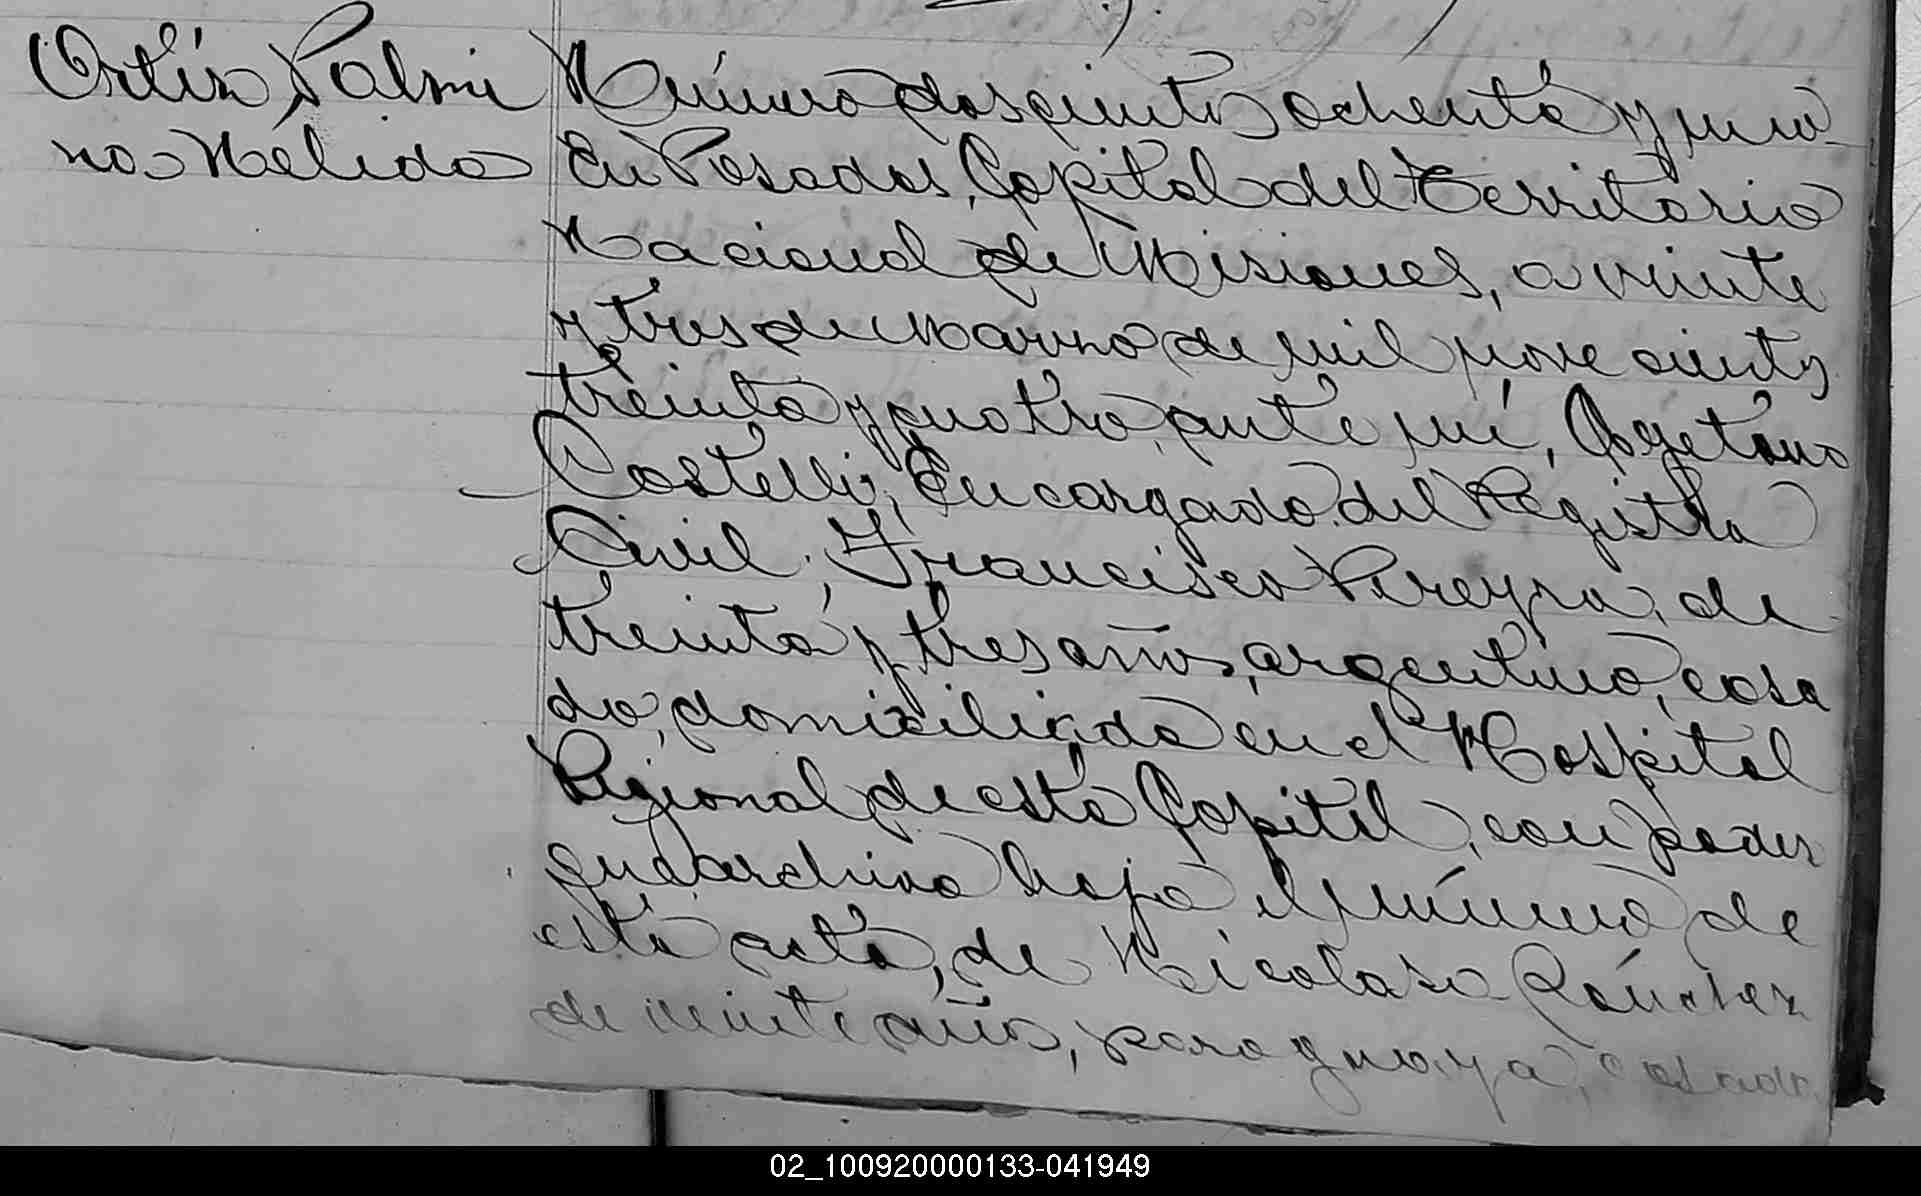 Ortiz, Palmi
na Nélida
Número doscientos ochenta y uno
En Posadas, Capital del Territorio
Nacional de Misiones, a veinte
y tres de Marzo de mil nove cientos
treinta y cuatro, ante mí, Cayetano
Castelli, Encargado del Registro
Civil, Francisco Pereyra, de
treinta y tres años, argentino, casa
do, domiciliado en el Hospital
Regional de esta Capital, con poder
que archivo bajo el número de
esta acta, de Nicolasa Sánchez
de veinte años, paraguaya, casada
02_100920000133-041949